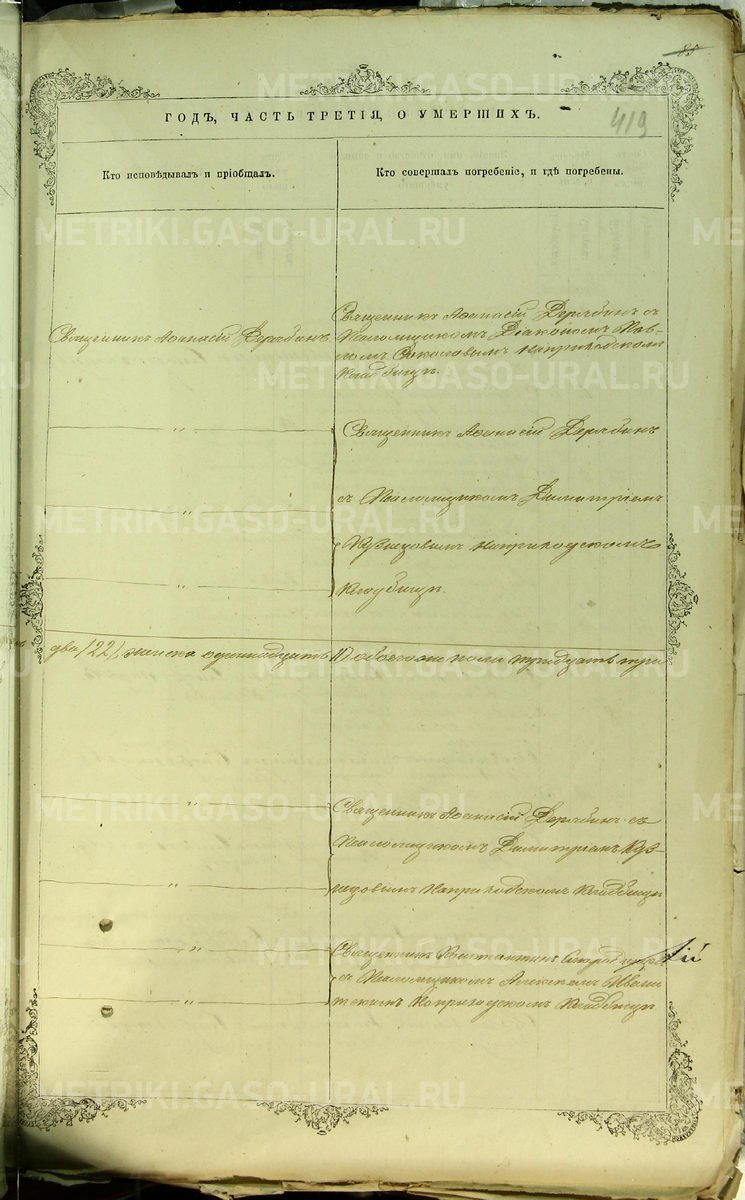 419
ГОДЪ, ЧАСТЬ ТРЕТІЯ, О УМЕРШИХЪ.
Кто исповѣдывалъ и пріобщалъ.
Кто совершалъ погребеніе, и гдѣ погребены.
Священникъ Аѳанасій Дерябинъ
Священникъ Аѳанасій Дерябинъ съ
Псаломщикомъ Діакономъ Пав-
ломъ Соколовымъ на приходскомъ
Кладбищѣ.
"
Священникъ Аѳанасій Дерябинъ
"
съ Псаломщикомъ Димитріемъ
Кузнецовымъ на приходскомъ
"
Кладбищѣ.
два /22/, женска одиннадцать 11) обоего пола тридцать три
"
Священникъ Аѳанасій Дерябинъ съ
Псаломщикомъ Димитріемъ Куз-
"
нецовымъ на приходскомъ Кладбищѣ
"
Священникъ Константинъ
съ Псаломщикомъ Алексѣемъ
"
на приходскомъ Кладбищѣ
METRIKI.GASO-URAL.RU